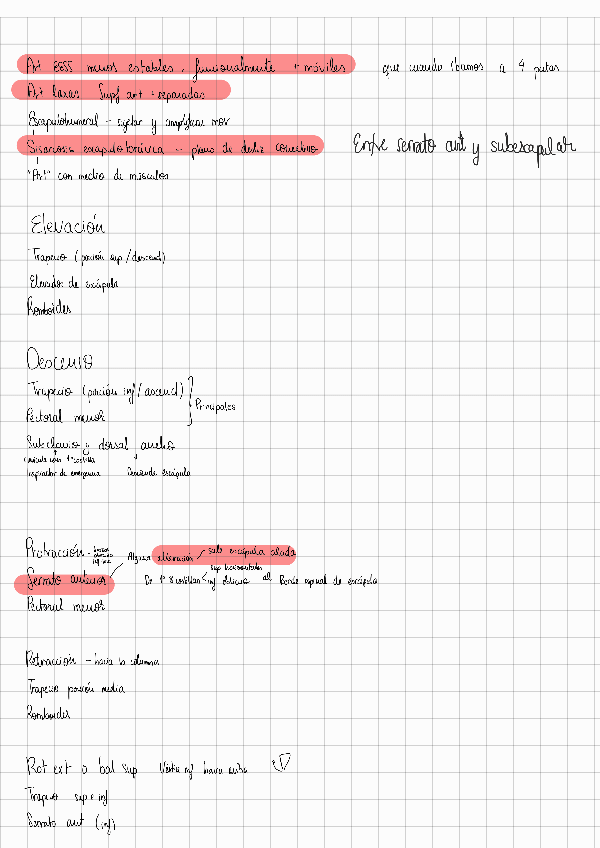 Art EESS menos estables, funcionalmente + móviles que cuando íbamos a 4 patas
Art laxas Supf art + separadas
Escapulohumeral - sujetar y amplificar mov
Sisarcosis escapulotorácica -- plano de desliz conectivo Entre serrato ant y subescapular
"Art" con medio de músculos
Elevación
Trapecio (porción sup / descend)
Elevador de escápula
Romboides
Descenso
Trapecio (porción inf / ascend)
Pectoral menor
Principales
Subclavio y dorsal ancho
clavícula 1ª costilla
Inspirador de emergencia Desciende escápula
Protracción - Alguna alteración sale escápula alada
sup horizontales
Serrato anterior De 1ª 8 costillas inf oblicuo al Borde espinal de escápula
Pectoral menor
Retracción - hacia la columna
Trapecio porción media
Romboides
Rot ext o bal sup Vértice inf hacia
Trapecio sup e inf
Serrato ant (inf)